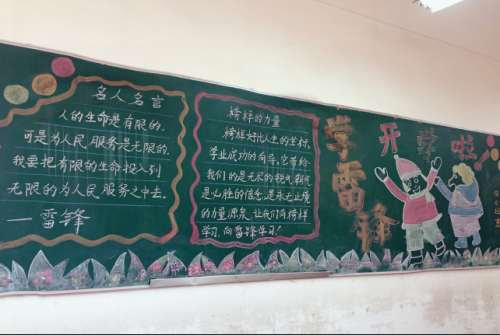 名人名言
人的生命是有限的,
可是为人民服务是无限的,
我要把有限的生命投入到
无限的为人民服务之中去。
—雷锋
榜样的力量
榜样好比人生的坐标,
事业成功的向导,它带给
我们的是无尽的锐气,朝气
是必胜的信念,是永无止境
的力量源泉,让我们向榜样
学习,向雷锋学习!
学雷锋
开学啦